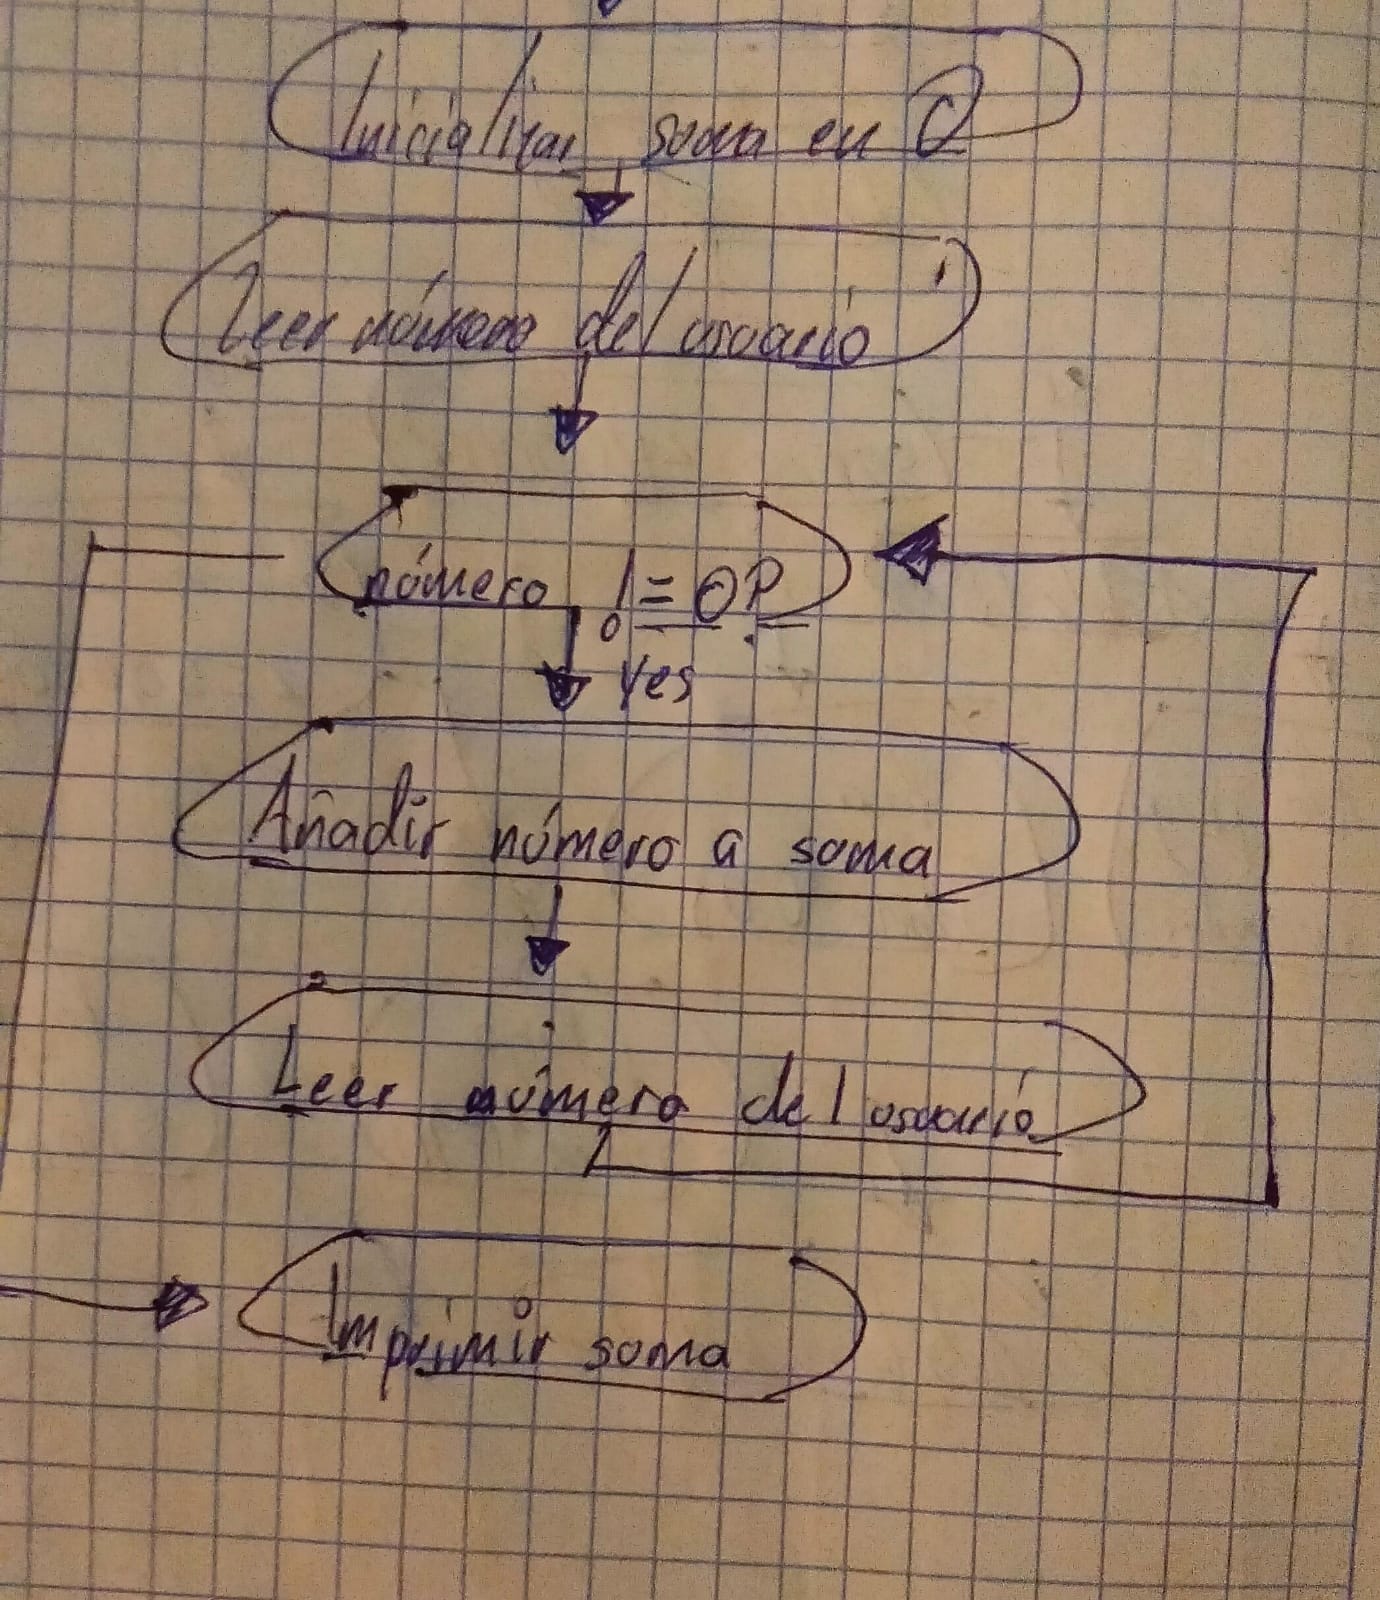 Inicializar soma en 0
Leer número del usuario
número != 0?
Yes
Añadir número a soma
Leer número del usuario
Imprimir soma